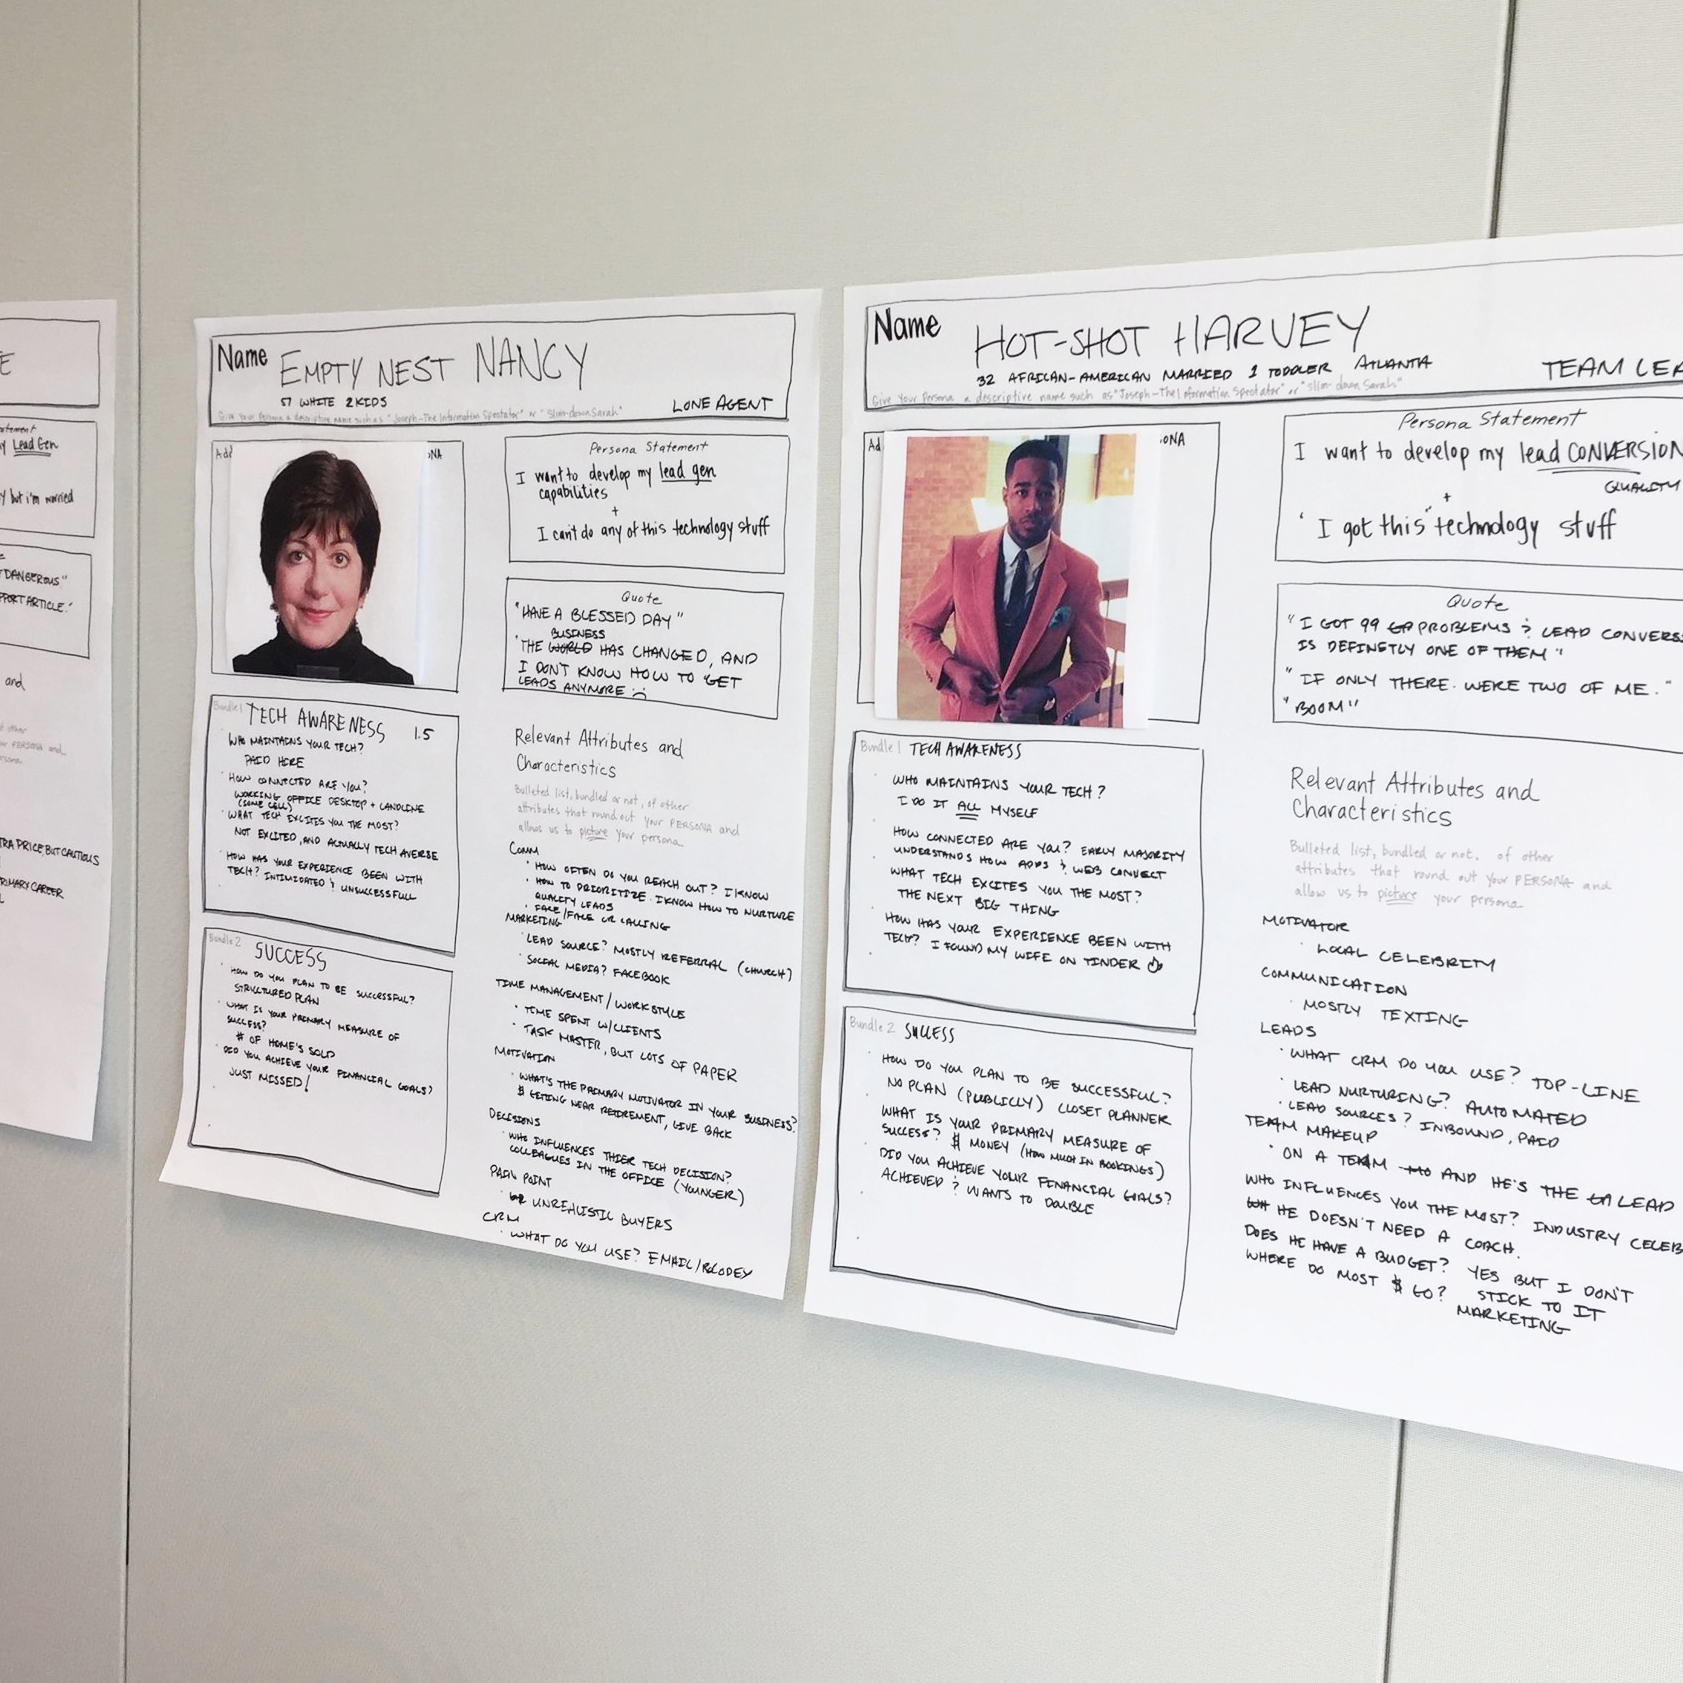 E
statement
y Lead Gen
y but i'm worried
DANGEROUS"
PPORT ARTICLE."
and
other
your PERSONA and
persona
TRA PRICE, BUT CAUTIOUS
PRIMARY CAREER
Name EMPTY NEST NANCY
57 WHITE 2 KIDS
LONE AGENT
Give Your Persona a descriptive name such as "Joseph-The Information Spectator" or "Slim-down Sarah"
Add
NA
Persona Statement
I want to develop my lead gen
capabilities
+
I can't do any of this technology stuff
Quote
"HAVE A BLESSED DAY"
BUSINESS
"THE WORLD HAS CHANGED, AND
I DON'T KNOW HOW TO GET
LEADS ANYMORE :(
Bundle 1 TECH AWARENESS 1.5
WHO MAINTAINS YOUR TECH?
PAID HIRE
· HOW CONNECTED ARE YOU?
WORKING OFFICE DESKTOP + LANDLINE
(SOME CELL)
· WHAT TECH EXCITES YOU THE MOST?
NOT EXCITED, AND ACTUALLY TECH AVERSE
· HOW HAS YOUR EXPERIENCE BEEN WITH
TECH? INTIMIDATED & UNSUCCESSFULL
Bundle 2 SUCCESS
· HOW DO YOU PLAN TO BE SUCCESSFUL?
STRUCTURED PLAN
· WHAT IS YOUR PRIMARY MEASURE OF
SUCCESS?
# OF HOME'S SOLD
· DID YOU ACHIEVE YOUR FINANCIAL GOALS?
JUST MISSED!
Relevant Attributes and
Characteristics
Bulleted list, bundled or not, of other
attributes that round out your PERSONA and
allow us to picture your persona
COMM
· HOW OFTEN DO YOU REACH OUT? I KNOW
· HOW TO PRIORITIZE. I KNOW HOW TO NURTURE
QUALITY LEADS
· FACE/FACE OR CALLING
MARKETING
· LEAD SOURCE? MOSTLY REFERRAL (CHURCH)
· SOCIAL MEDIA? FACEBOOK
TIME MANAGEMENT/WORKSTYLE
· TIME SPENT W/CLIENTS
· TASK MASTER, BUT LOTS OF PAPER
MOTIVATION
· WHAT'S THE PRIMARY MOTIVATOR IN YOUR BUSINESS?
$ GETTING NEAR RETIREMENT, GIVE BACK
DECISIONS
· WHO INFLUENCES THIER TECH DECISION?
COLLEAGUES IN THE OFFICE (YOUNGER)
PAIN POINT
· UNREALISTIC BUYERS
CRM
· WHAT DO YOU USE? EMAIL/ROLODEY
Name HOT-SHOT HARVEY
32 AFRICAN-AMERICAN MARRIED 1 TODDLER ATLANTA
TEAM LEA
Give Your Persona a descriptive name such as "Joseph-The Information Spectator" or "Slim-down Sarah"
Ad
ONA
Persona Statement
I want to develop my lead CONVERSION
QUALITY
+
"I got this" technology stuff
Quote
"I GOT 99 PROBLEMS & LEAD CONVERS
IS DEFINETLY ONE OF THEM"
"IF ONLY THERE WERE TWO OF ME."
"BOOM"
Bundle 1 TECH AWARENESS
· WHO MAINTAINS YOUR TECH?
I DO IT ALL MYSELF
· HOW CONNECTED ARE YOU? EARLY MAJORITY
UNDERSTANDS HOW APPS & WEB CONNECT
· WHAT TECH EXCITES YOU THE MOST?
THE NEXT BIG THING
· HOW HAS YOUR EXPERIENCE BEEN WITH
TECH? I FOUND MY WIFE ON TINDER
Bundle 2 SUCCESS
· HOW DO YOU PLAN TO BE SUCCESSFUL?
NO PLAN (PUBLICLY) CLOSET PLANNER
· WHAT IS YOUR PRIMARY MEASURE OF
SUCCESS? $ MONEY (HOW MUCH IN BOOKINGS)
· DID YOU ACHIEVE YOUR FINANCIAL GOALS?
ACHIEVED & WANTS TO DOUBLE
Relevant Attributes and
Characteristics
Bulleted list, bundled or not, of other
attributes that round out your PERSONA and
allow us to picture your persona
MOTIVATOR
· LOCAL CELEBRITY
COMMUNICATION
· MOSTLY TEXTING
LEADS
· WHAT CRM DO YOU USE? TOP-LINE
· LEAD NURTURING? AUTOMATED
· LEAD SOURCES? INBOUND, PAID
TEAM MAKEUP
· ON A TEAM AND HE'S THE LEAD
WHO INFLUENCES YOU THE MOST? INDUSTRY CELEB
HE DOESN'T NEED A COACH.
DOES HE HAVE A BUDGET? YES BUT I DON'T
STICK TO IT
WHERE DO MOST $ GO? MARKETING